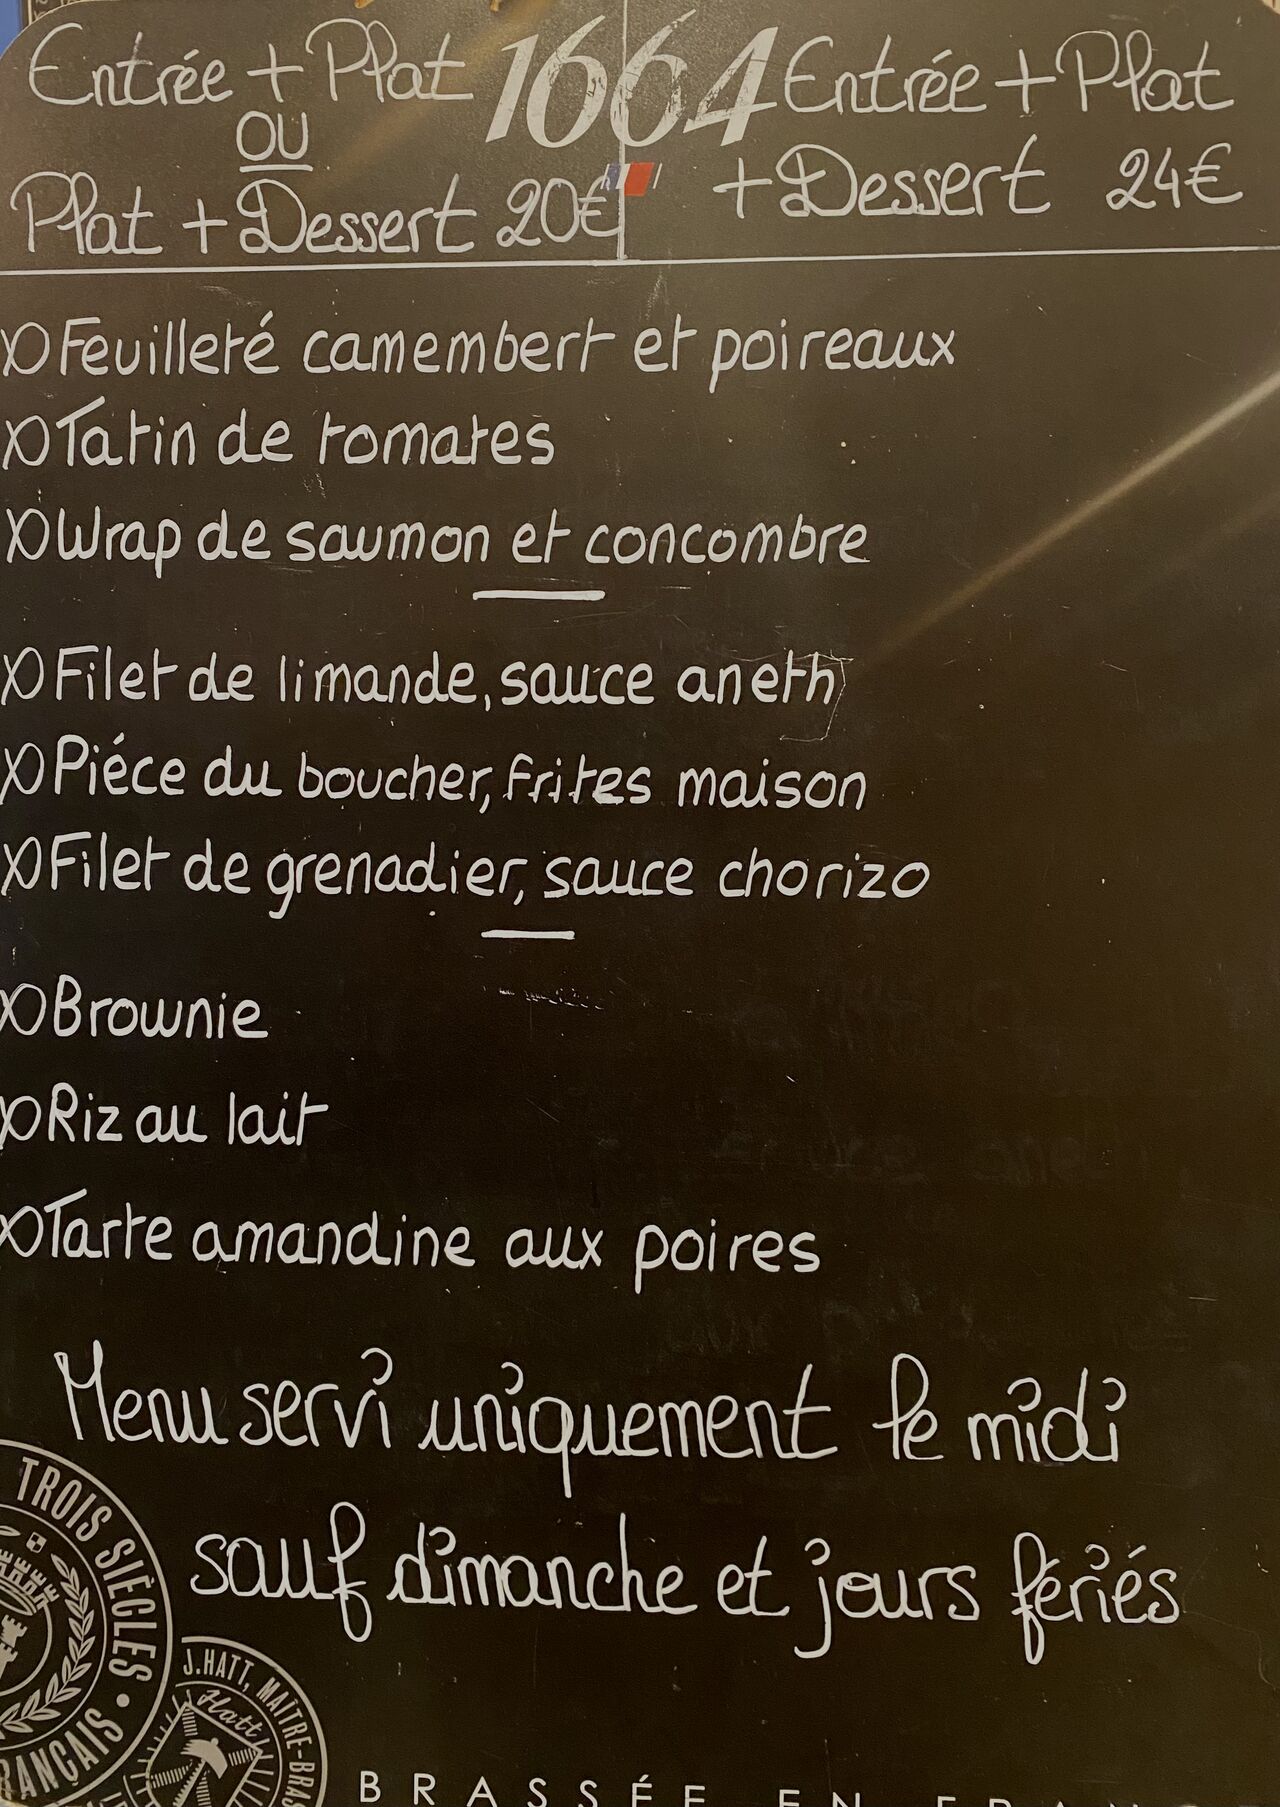 Entrée + Plat
OU
Plat + Dessert 20€
1664
Entrée + Plat
+ Dessert 24€
Feuilleté camembert et poireaux
Tatin de tomates
Wrap de saumon et concombre
Filet de limande, sauce aneth
Piéce du boucher, frites maison
Filet de grenadier, sauce chorizo
Brownie
Riz au lait
Tarte amandine aux poires
Menu servi uniquement le midi
sauf dimanche et jours fériés
TROIS SIÈCLES •
J.HATT, MAÎTRE-BRAS
Hatt
BRASSÉE EN